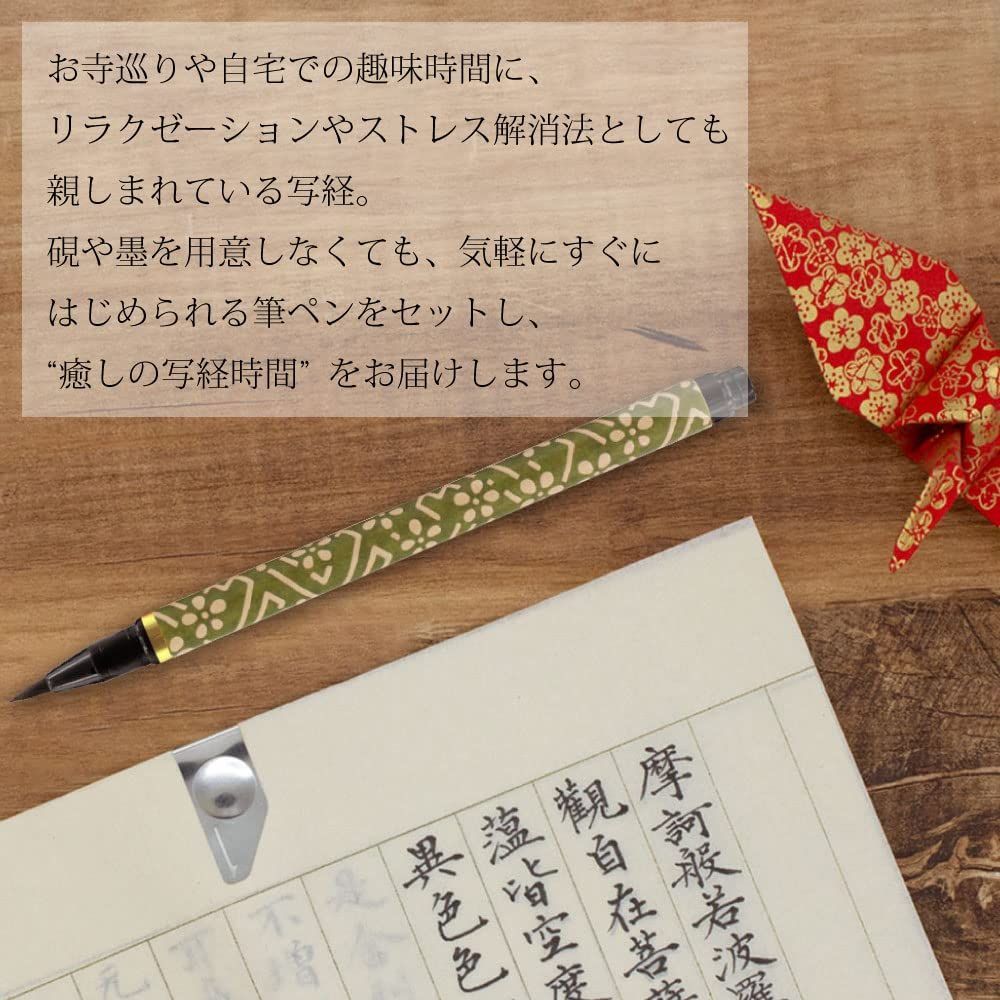 お寺巡りや自宅での趣味時間に、
リラクゼーションやストレス解消法としても
親しまれている写経。
硯や墨を用意しなくても、気軽にすぐに
はじめられる筆ペンをセットし、
“癒しの写経時間”をお届けします。
摩訶般若波羅
觀自在菩薩
蘊皆空度
異色色
是舍
不增